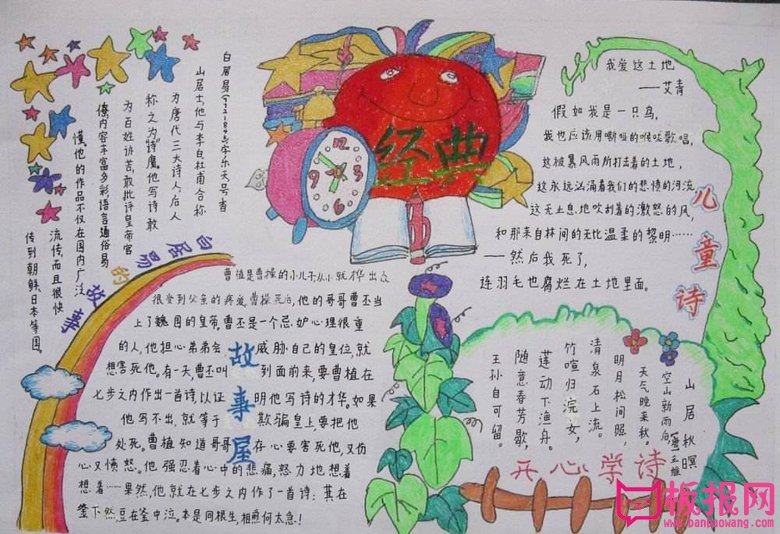 白居易(772-846字乐天号香
山居士,他与李白杜甫合称
为唐代三大诗人,后人
称之为"诗魔"他写诗敢
为百姓诉苦敢批评皇帝官
僚内容丰富多彩语言通俗易
懂,他的作品不仅在国内广泛
流传,而且很快
传到朝鲜、日本等国。
白居易的故事
经典
曹植是曹操的小儿子从小就才华出众
很受到父亲的疼爱,曹操死后,他的哥哥曹丕当
上了魏国的皇帝,曹丕是一个忌妒心理很重
的人,他担心弟弟会威胁自己的皇位,就
想害死他,有一天,曹丕叫到面前来,要曹植在
七步之内作出一首诗以证明他写诗的才华。如果
他写不出,就等于欺骗皇上要把他
处死。曹植知道哥哥存心要害死他,又伤
心又愤怒。他强忍着心中的悲痛,努力地想着
想着……果然,他就在七步之内作了一首诗:萁在
釜下然豆在釜中泣。本是同根生,相煎何太急!
故事屋
我爱这土地
——艾青
假如我是一只鸟,
我也应该用嘶哑的喉咙歌唱,
这被暴风雨所打击着的土地,
这永远汹涌着我们的悲愤的河流
这无止息地吹刮着的激怒的风,
和那来自林间的无比温柔的黎明……
——然后我死了,
连羽毛也腐烂在土地里面。
儿童诗
山居秋暝
唐王维
空山新雨后,
天气晚来秋。
明月松间照,
清泉石上流。
竹喧归浣女,
莲动下渔舟。
随意春芳歇,
王孙自可留。
开心学诗
板报网
www.banbaowang.com